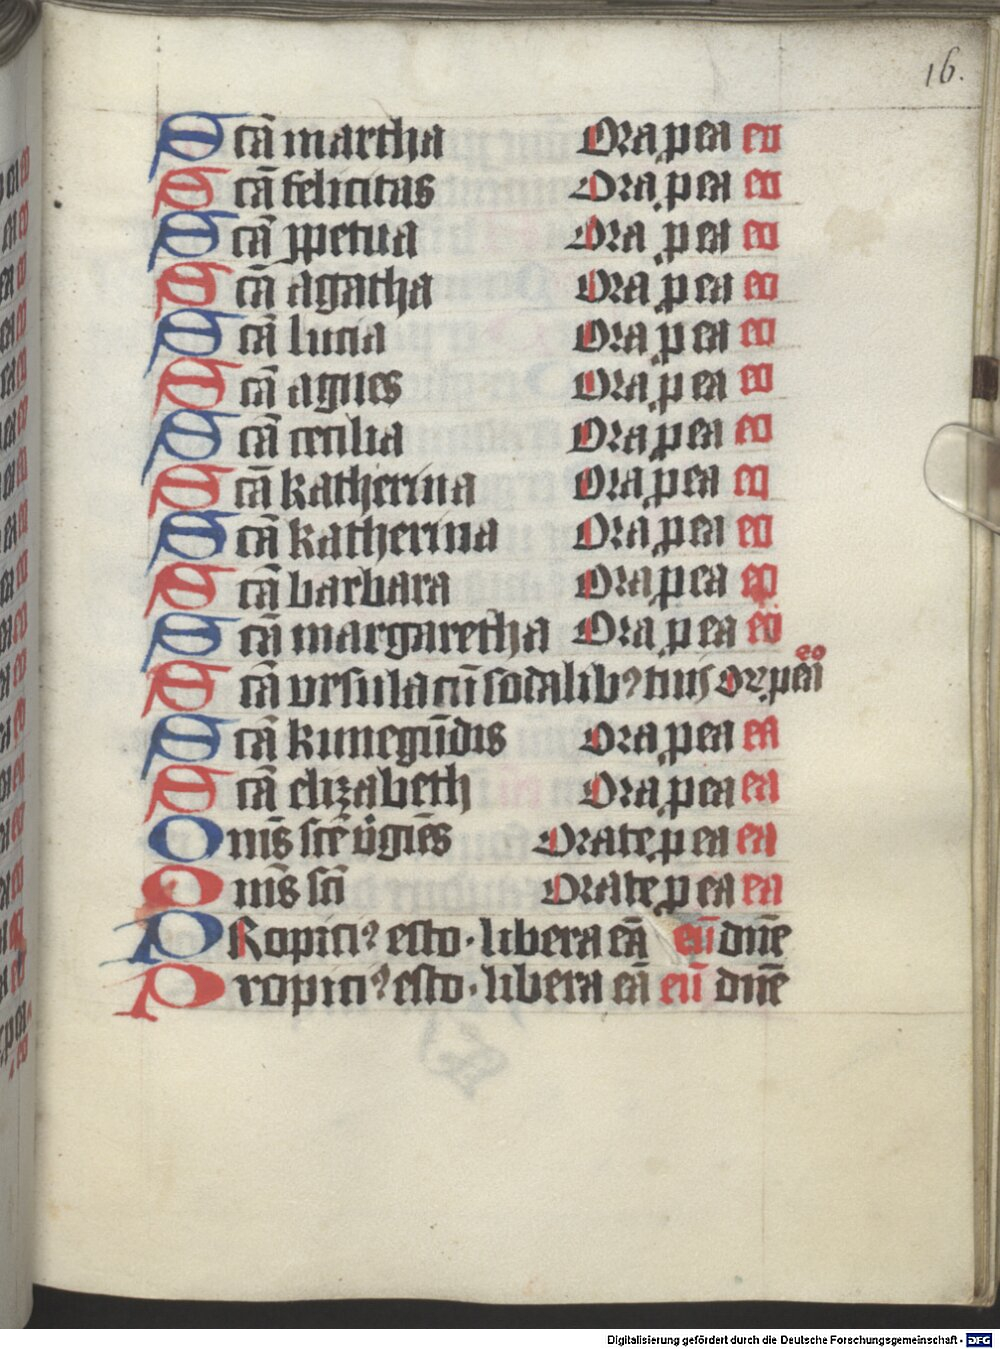 16.
Scā martha Ora p ea eo
Scā felicitas Ora p ea eo
Scā ꝑpetua Ora p ea eo
Scā agatha Ora p ea eo
Scā lucia Ora p ea eo
Scā agnes Ora p ea eo
Scā cecilia Ora p ea eo
Scā katherina Ora p ea eo
Scā katherina Ora p ea eo
Scā barbara Ora p ea eo
Scā margaretha Ora p ea eo
Scā vrsula cū sodalibꝰ tuis Or p ea eo
Scā kunegūdis Ora p ea ea
Scā elizabeth Ora p ea ea
Oms̄ scē v̄giēs Orate p ea ea
Oms̄ scī Orate p ea ea
PRopiciꝰ esto · libera eā eū dn̄e
Propiciꝰ esto · libera eā eū dn̄e
Digitalisierung gefördert durch die Deutsche Forschungsgemeinschaft - DFG